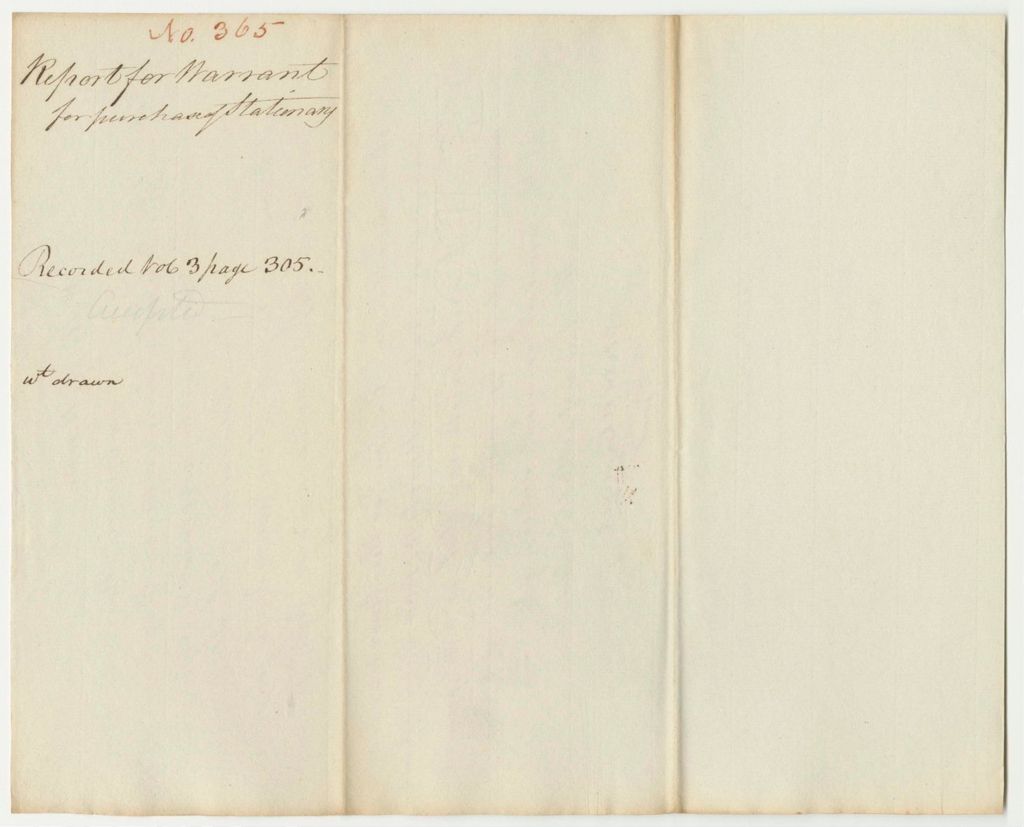 No. 365
Report for Warrant
for purchase of Stationary
Recorded Vol 3 page 305.
Accepted
wt drawn